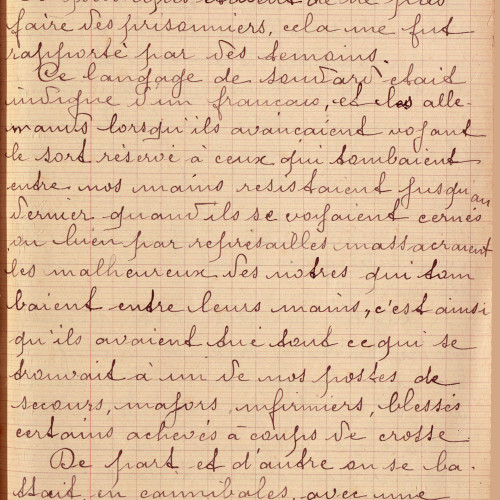 faire des prisonniers, cela me fut
rapporté par des temoins.
Ce langage de soudard était
indigne d'un francais, et les alle-
mands lorsqu'ils avancaient voyant
le sort réservé à ceux qui tombaient
entre nos mains resistaient jusqu'au
dernier quand ils se voyaient cernés
ou bien par représailles massacraient
les malheureux des notres qui tom
baient entre leurs mains, c'est ainsi
qu'ils avaient tué tout ce qui se
trouvait à un de nos postes de
secours, majors, infirmiers, blessés
certains achevés à coups de crosse
De part et d'autre on se ba-
ttait en cannibales, avec une